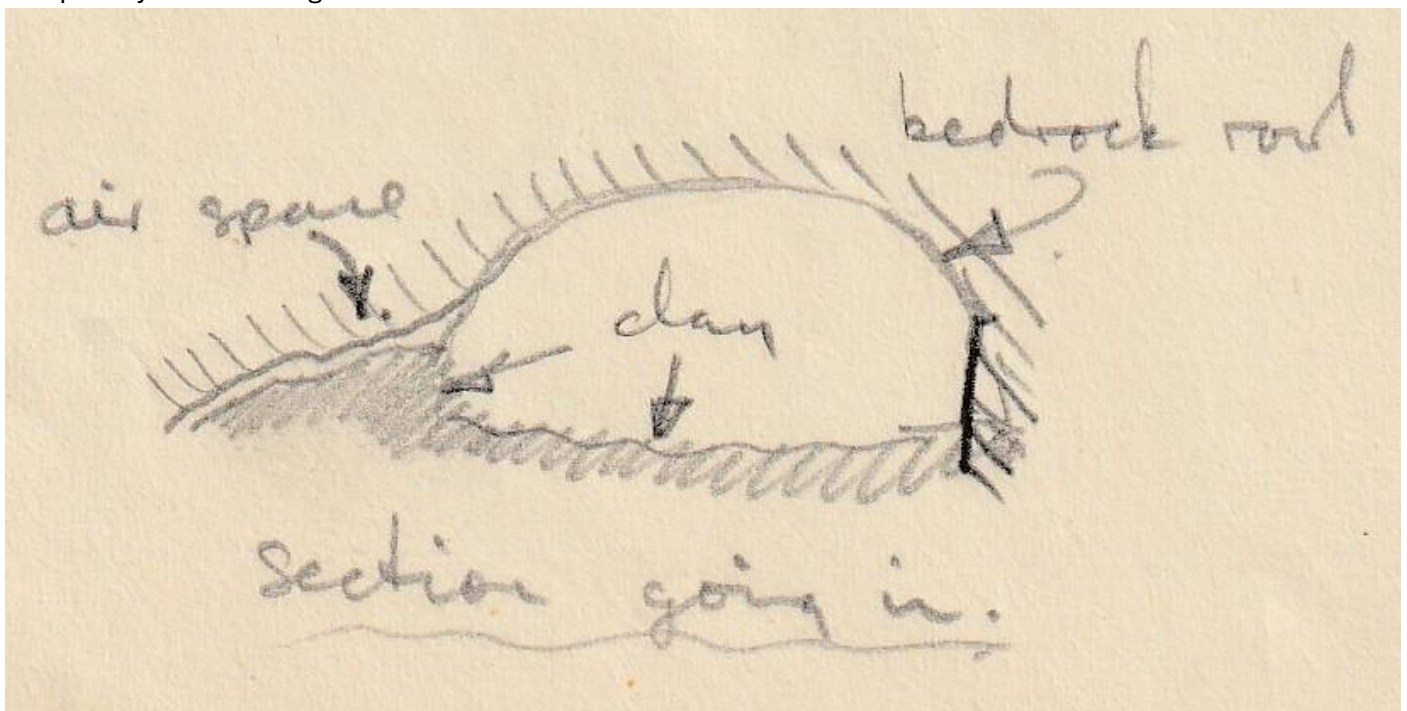 bedrock roof
air space
clay
section going in.